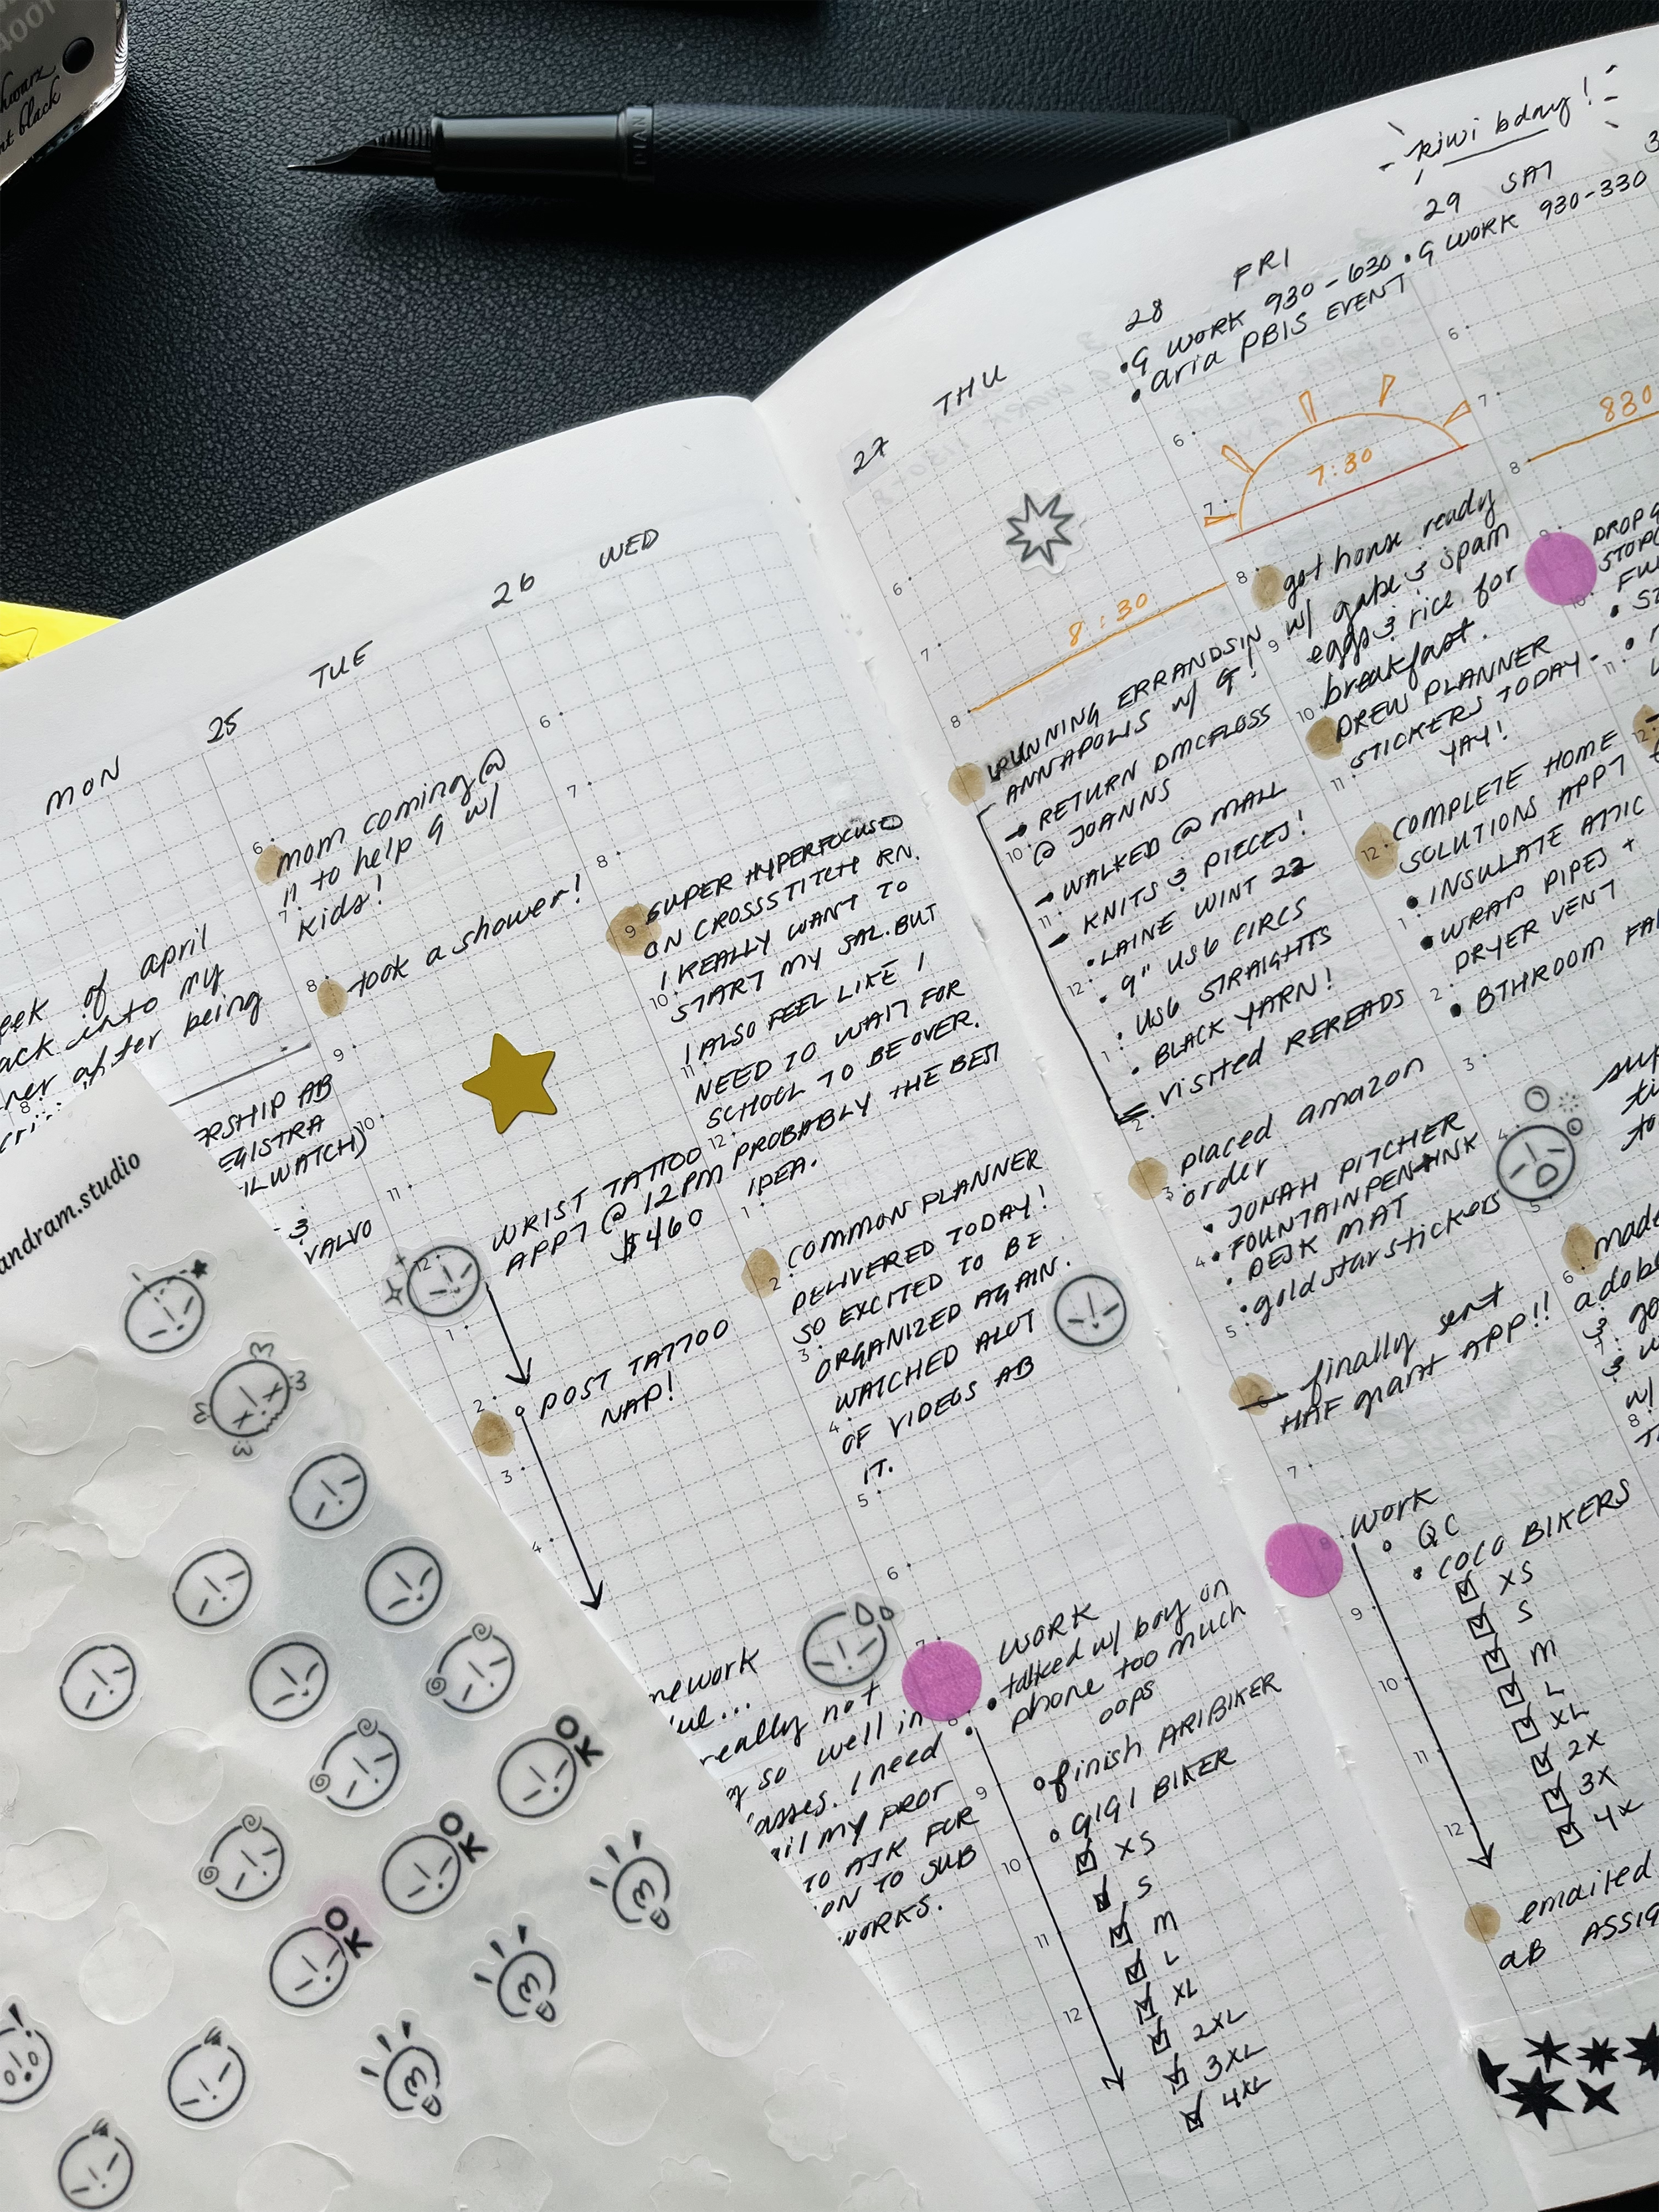 400T
hwarz
nt black
kiwi bday!
MON
eek of april
ack into my
ner after being
ERSHIP AB
EGISTRA
ILWATCH)
& 3
VALVO
25 TUE
mom coming @
11 to help G w/
kids!
took a shower!
WRIST TATTOO
APPT @ 12PM
$460
POST TATTOO
NAP!
nework
due...
really not
g so well in
lasses. I need
ail my prof
TO ASK FOR
ON TO SUB
WORKS.
26 WED
SUPER HYPERFOCUSED
ON CROSSSTITCH RN.
I REALLY WANT TO
START MY SAL. BUT
I ALSO FEEL LIKE I
NEED TO WAIT FOR
SCHOOL TO BE OVER.
PROBABLY THE BEST
IDEA.
COMMON PLANNER
DELIVERED TODAY!
SO EXCITED TO BE
ORGANIZED AGAIN.
WATCHED ALOT
OF VIDEOS AB
IT.
WORK
• talked w/ boy on
phone too much
oops
finish ARIBIKER
GIGI BIKER
XS
S
M
L
XL
2XL
3XL
4XL
27 THU
8:30
RUNNING ERRANDS IN
ANNAPOLIS w/ G!
→ RETURN DMCFLOSS
@ JOANNS
→ WALKED @ MALL
→ KNITS & PIECES!
• LAINE WINT 22
• 9" US6 CIRCS
• US6 STRAIGHTS
• BLACK YARN!
visited REREADS
placed amazon
order
• JONAH PITCHER
• FOUNTAINPEN INK
• DESK MAT
• gold star stickers
finally sent
HAF grant APP!!
work
QC
• COCO BIKERS
XS
S
M
L
XL
2X
3X
4X
emailed
AB ASSIG
28 FRI
• G WORK 930-630
• aria PBIS EVENT
7:30
got house ready
w/ gabe & spam
eggs & rice for
breakfast.
DREW PLANNER
STICKERS TODAY-
YAY!
COMPLETE HOME
SOLUTIONS APPT
• INSULATE ATTIC
• WRAP PIPES +
DRYER VENT
• BTHROOM FA
made
adobe
29 SAT
• G WORK 930-330
830
andram.studio
OK
OK
OK